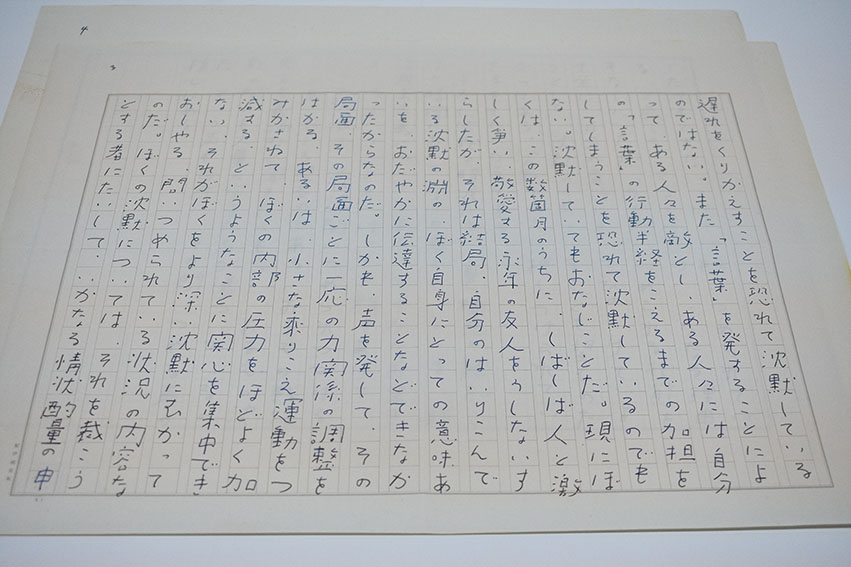 4
3
遅れをくりかえすことを恐れて沈黙している
のではない。また「言葉」を発することによ
って、ある人々を敵とし、ある人々には自分
の「言葉」の行動半径をこえるまでの加担を
してしまうことを恐れて沈黙しているのでも
ない。沈黙していてもおなじことだ。現にぼ
くは、この数箇月のうちに、しばしば人と激
しく争い、敬愛する永年の友人をうしないす
らしたが、それは結局、自分のはいりこんで
いる沈黙の淵の、ぼく自身にとっての意味あ
いを、おだやかに伝達することなどできなか
ったからなのだ。しかも、声を発して、その
局面、その局面ごとに一応の力関係の調整を
はかる、あるいは、小さな乗りこえ運動をつ
みかさねて、ぼくの内部の圧力をほどよく加
減する、というようなことに関心を集中でき
ない、それがぼくをより深い沈黙にむかって
おしやる、問いつめられている状況の内容な
のだ。ぼくの沈黙については、それを裁こう
とする者にたいして、いかなる情状酌量の申